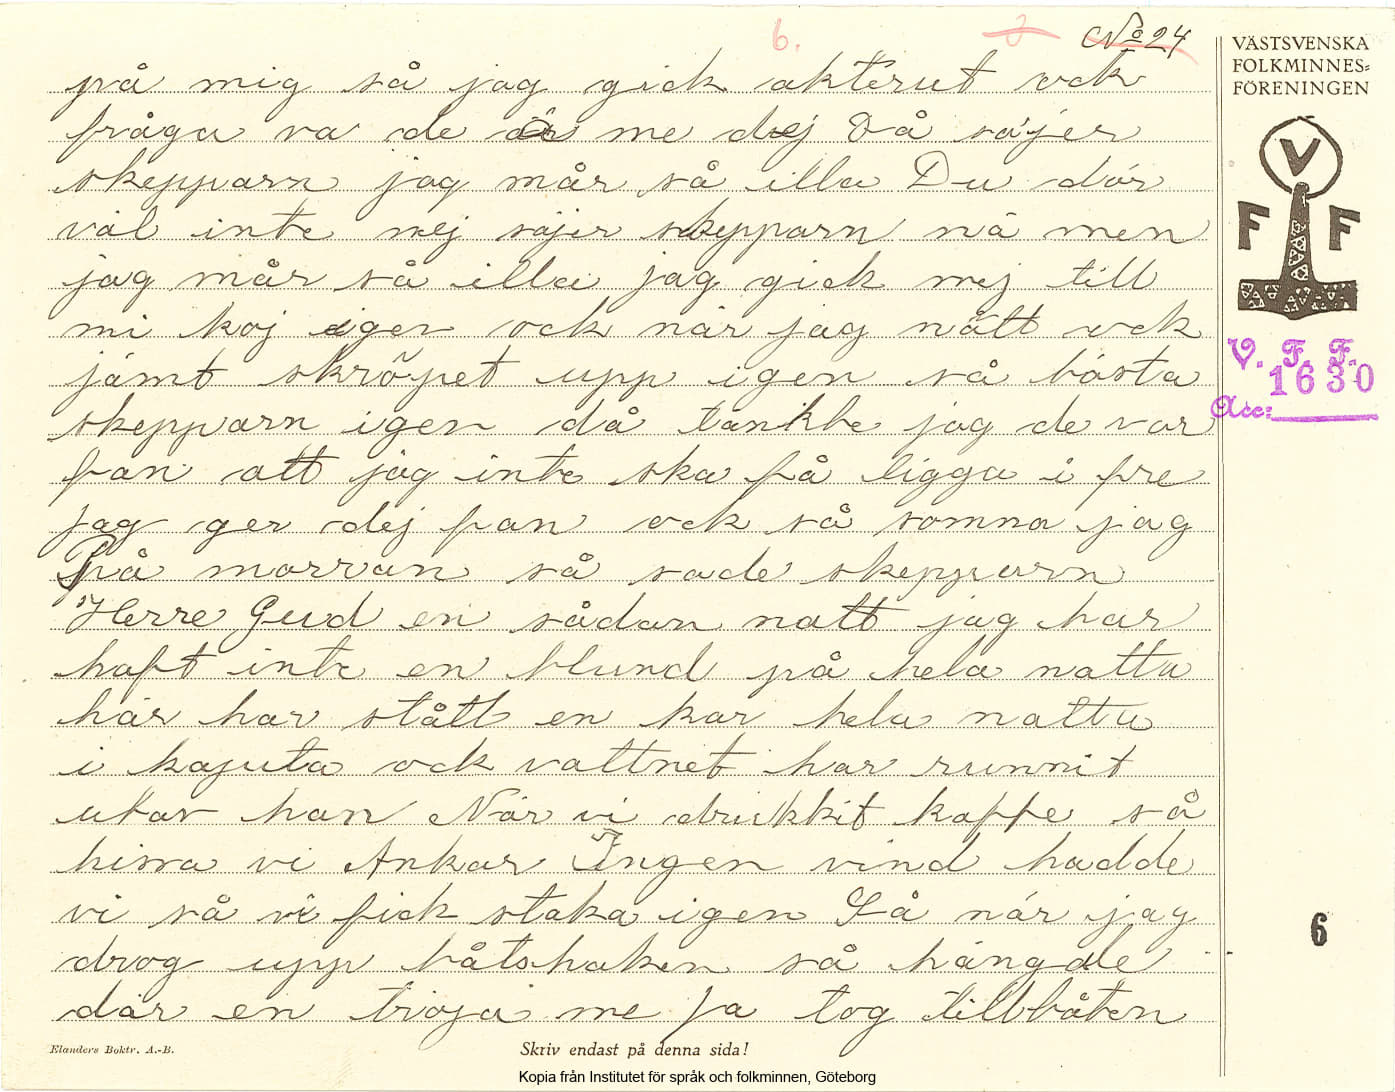 6. 2 No 24
på mig så jag gick akterut ock
fråga va de är me dej Då säjer
skepparn jag mår så illa Du dör
väl inte mej säjer skepparn nä men
jag mår så illa jag gick mej till
mi koj igen ock när jag nått ock
jämt skröpet upp igen så bösta
skepparn igen då tänkte jag de var
fan att jag inte ska få ligga i fre
jag ger dej fan ock så somna jag
På morran så sade skepparn
Herre Gud en sådan natt jag har
haft inte en blund på hela natta
här har stått en kar hela natta
i kajuta ock vattnet har runnit
utav han När vi drukkit kaffe så
hissa vi Ankar Ingen vind hadde
vi så vi fick staka igen Då när jag
drog upp båtshaken så hängde
där en tröja me Ja tog tillbåten
VÄSTSVENSKA
FOLKMINNES-
FÖRENINGEN
V
F F
V. F. F.
1630
Acc:
6
Elanders Boktr. A.-B.
Skriv endast på denna sida!
Kopia från Institutet för språk och folkminnen, Göteborg